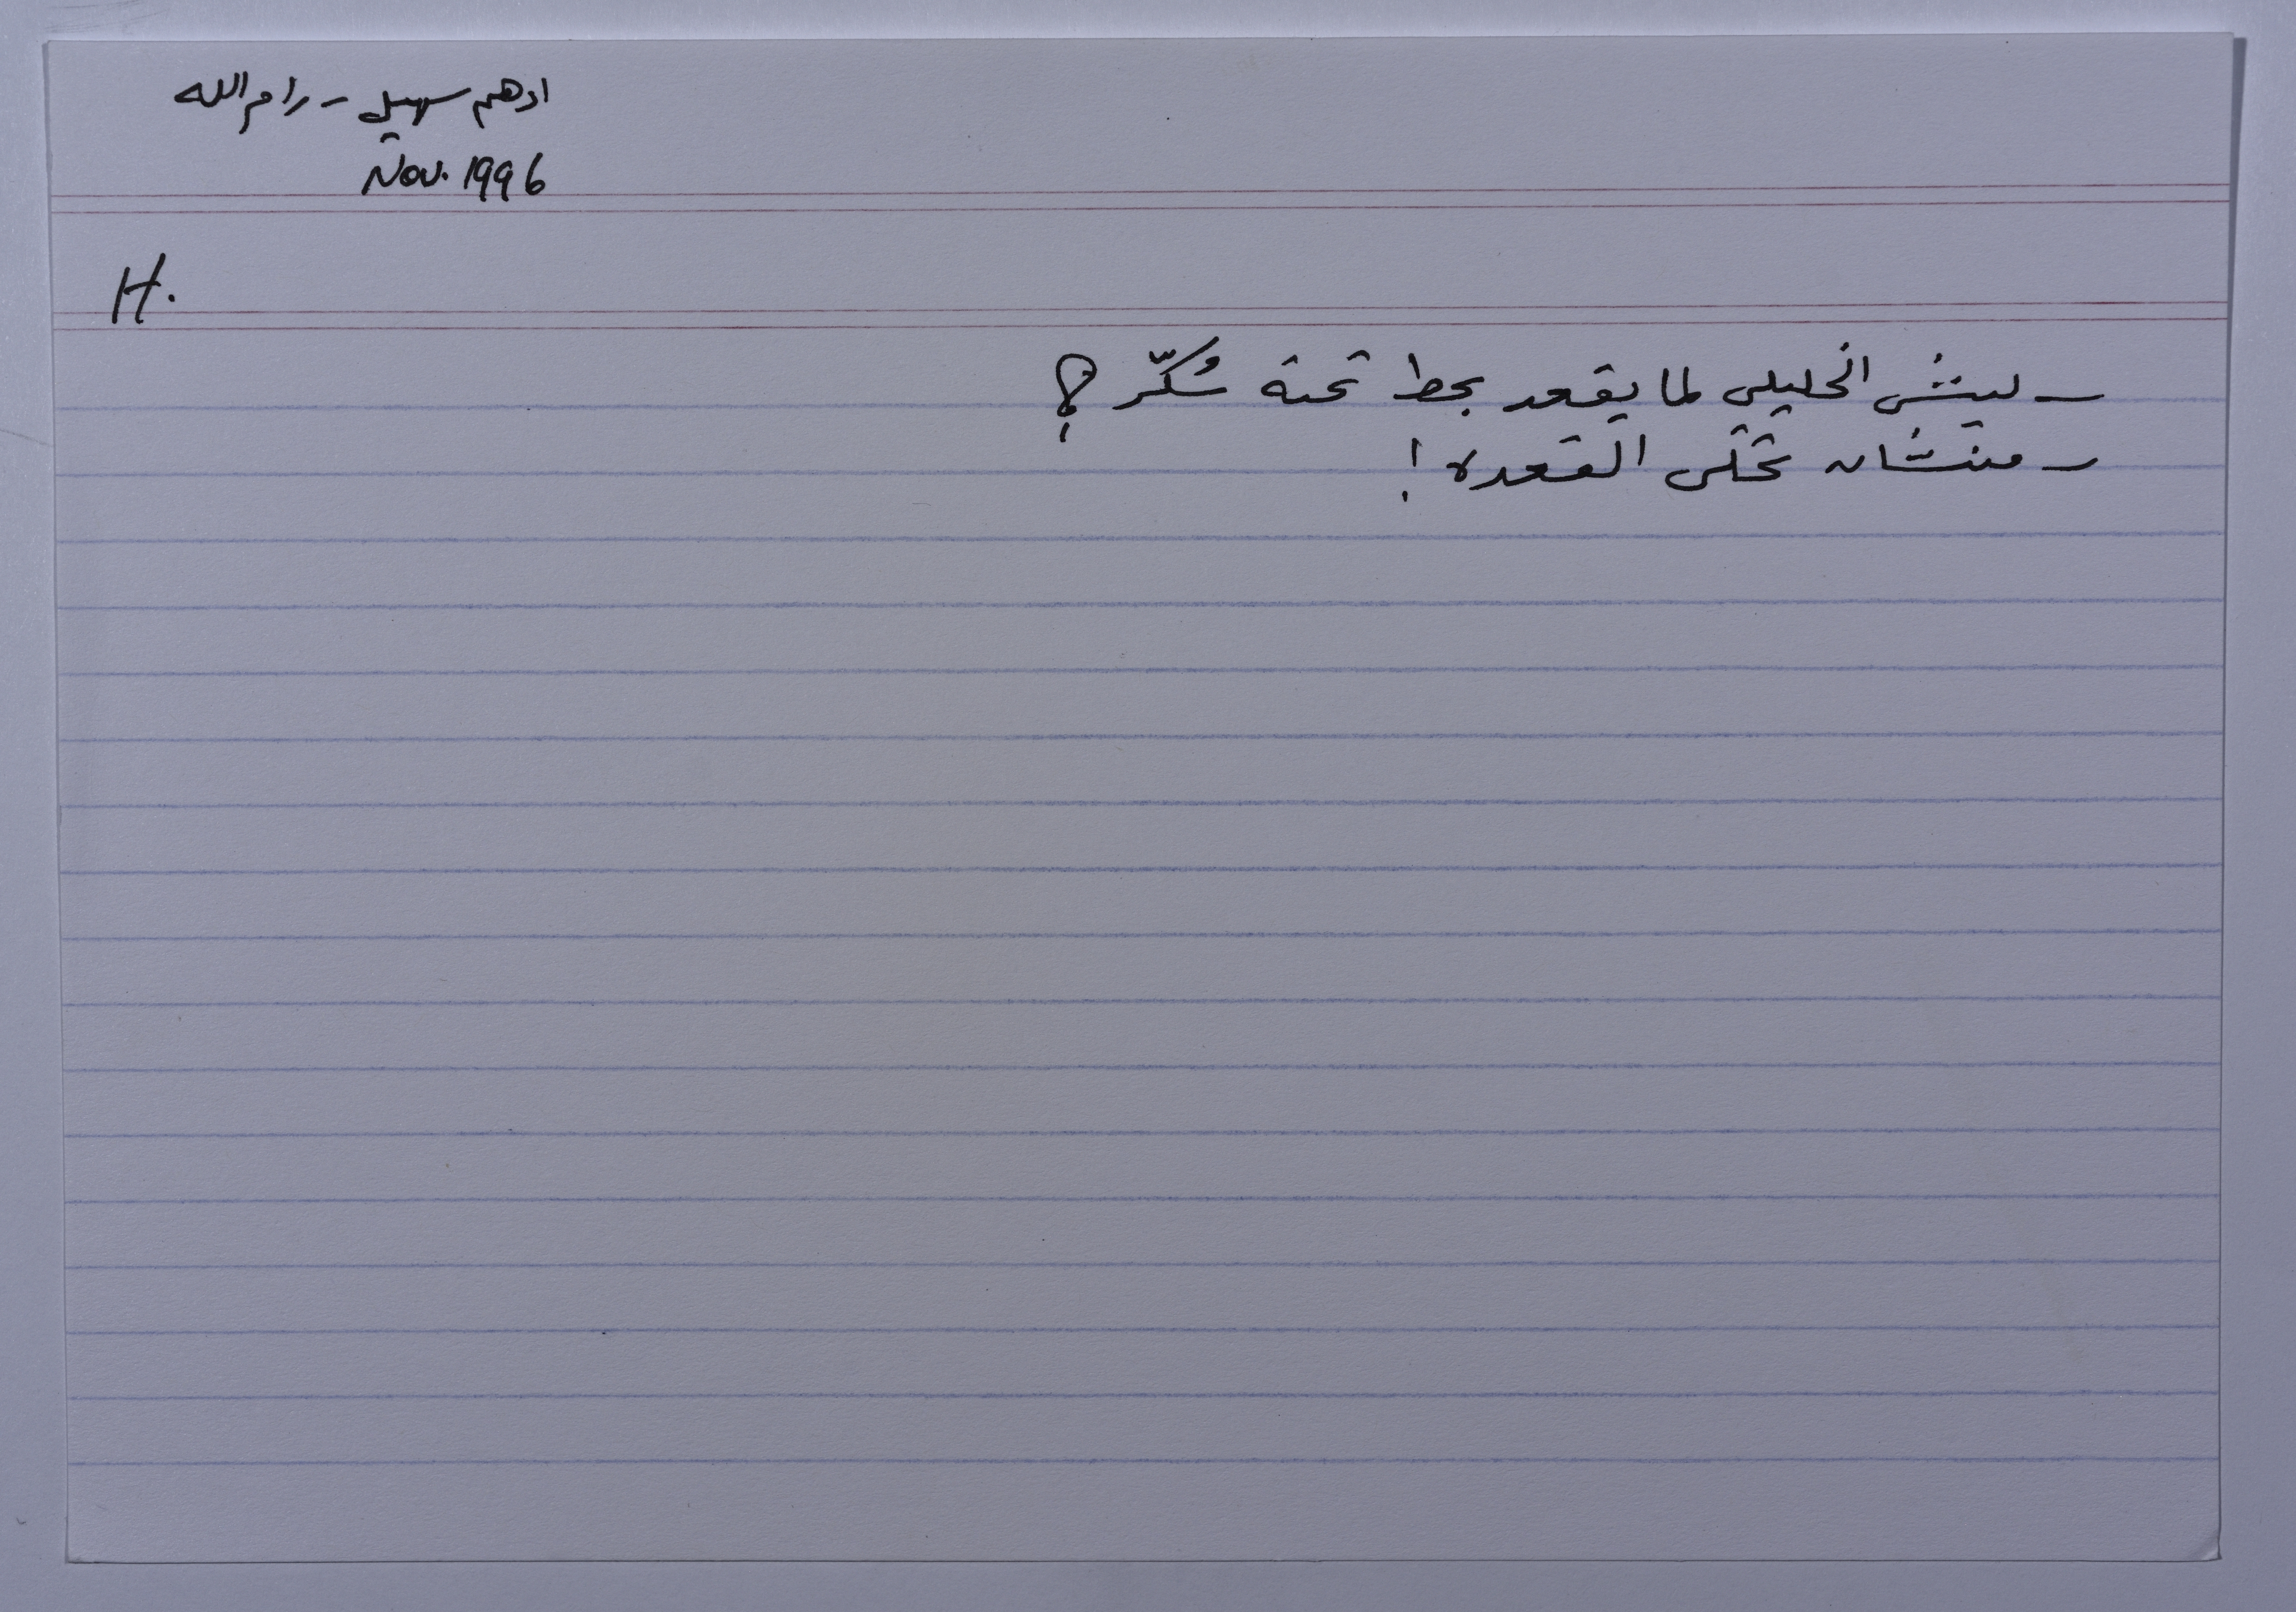 ادهم سهيل - رام الله
Nov. 1996
H.
- ليش الخليلي لما يقعد بحط تحته سُكّر ؟
- منشان تحلى القعده !